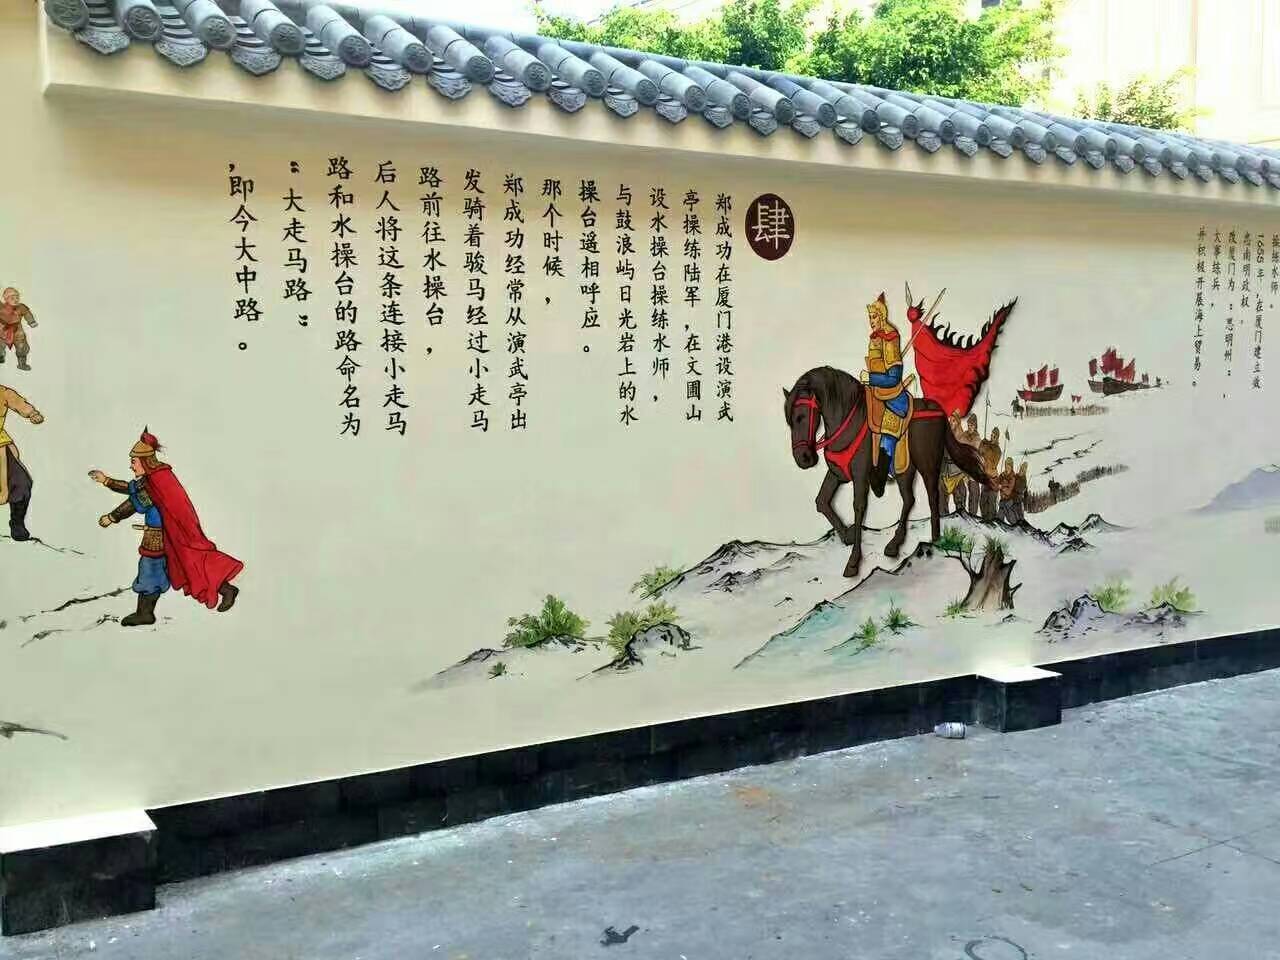 操练水师。
1655年,在厦门建立效
忠南明政权。
改厦门为“思明州”,
大事练兵,
并积极开展海上贸易。
肆
郑成功在厦门港设演武
亭操练陆军,在文圃山
设水操台操练水师,
与鼓浪屿日光岩上的水
操台遥相呼应。
那个时候,
郑成功经常从演武亭出
发骑着骏马经过小走马
路前往水操台,
后人将这条连接小走马
路和水操台的路命名为
“大走马路”
,即今大中路。